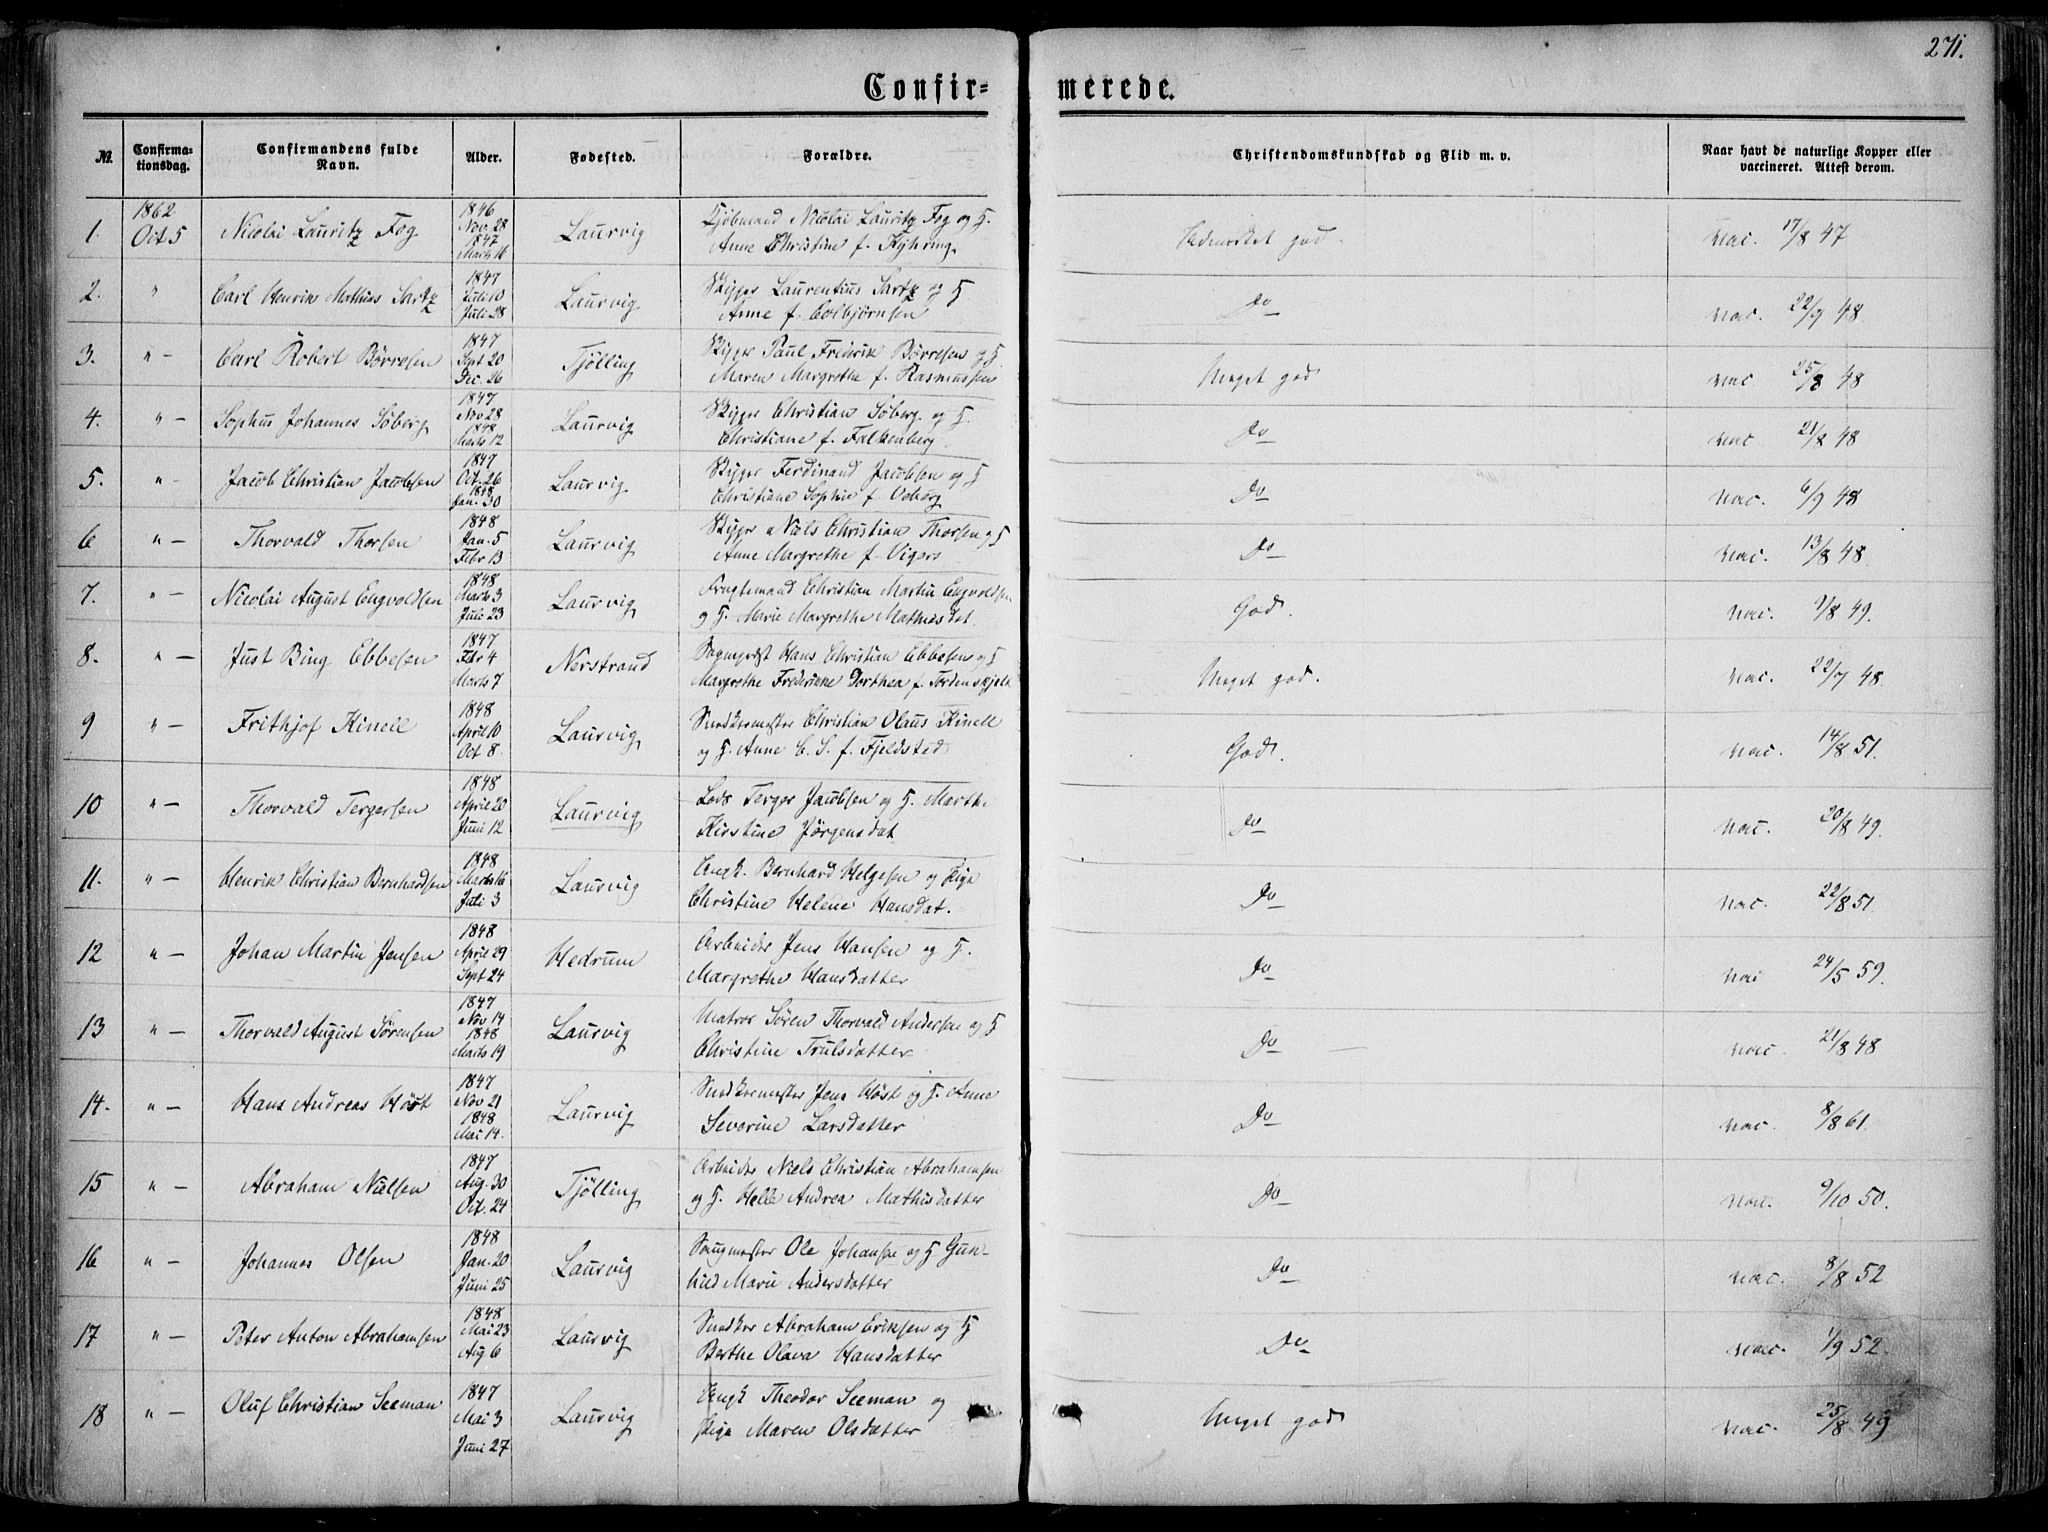 271.
Confir=
merede.
No.
Confirma-
tionsdag.
Confirmandens fulde
Navn.
Alder.
Fødested.
Forældre.
Christendomskundskab og Flid m. v.
Naar havt de naturlige Kopper eller
vaccineret. Attest derom.
1.
1862
Oct 5
Nicolai Lauritz Fog
1846
Nov. 28
1847
Marts 16
Laurvig
Kjöbmand Nicolai Lauritz Fog og H.
Anne Christine f. Kyhring
Udmærket god.
vac. 17/8 47
2.
"
Carl Henrik Mathias Sartz
1847
Juli 10
Juli 28
Laurvig
Skipper Laurentius Sartz og H
Anne f. Colbjörnsen
Do
vac. 22/9 48
3.
" -
Carl Robert Börresen
1847
Sept 20
Dec. 26
Tjölling
Skipper Paul Frederik Börresen og H
Maren Margrethe f. Rasmussen
Meget god
vac 25/8 48
4.
" -
Sophus Johannes Söberg
1847
Nov 28
1848
Marts 12
Laurvig
Skipper Christian Söberg og H.
Christiane f. Falkenberg
Do
vac 21/8 48
5.
" -
Jacob Christian Jacobsen
1847
Oct. 26
1848
Jan. 30
Laurvig
Skipper Ferdinand Jacobsen og H
Christiane Sophie f. Veberg
Do
vac. 6/9 48
6
" -
Thorvald Thorsen
1848
Jan. 5
Febr 13
Laurvig
Skipper Niels Christian Thorsen og H
Anne Margrethe f. Vigers
Do
vac. 13/8 48.
7.
" -
Nicolai August Engvoldsen
1848
Marts 3
Juli 23
Laurvig
Christian Martin Engvoldsen
og H. Marie Margrethe Mathisdat.
God.
vac. 7/8 49.
8.
" -
Just Bing Ebbesen
1847
Febr 4
Marts 7
Nerstrand
Sognepræst Hans Christian Ebbesen og H
Margrethe Frederikke Dorthea f. Tordenskjold
Meget god.
vac. 22/9 48.
9
" -
Frithjof Kinell
1848
April 10
Oct 8.
Laurvig
Snedkermester Christian Olaus Kinell
og H. Anne C. S. f. Fjeldsted
God.
vac. 14/8 51.
10
" -
Thorvald Tergersen
1848
April 20
Juni 12
Laurvig
Lods Terger Jacobsen og H. Marthe
Kirstine Jörgensdat
Do
vac. 20/8 49.
11.
" -
Henrik Christian Bernhardsen
1848
Marts 16
Juli 3
Laurvig
Ungk. Bernhard Helgesen og Pige
Christine Helene Hansdat.
Do
vac. 22/8 51.
12
" -
Johan Martin Jensen
1848
April 29
Sept 24
Hedrum
Arbeider Jens Hansen og H.
Margrethe Hansdatter
Do
vac 24/5 59.
13
" -
Thorvald August Sörensen
1847
Nov 14
1848
Marts 19
Laurvig
Matros Sören Thorvald Andersen og H
Christine Trulsdatter
Do
vac. 21/8 48
14.
" -
Hans Andreas Höst
1847
Nov 21
1848
Mai 14.
Laurvig
Snedkermester Jens Höst og H. Anne
Severine Larsdatter
Do
vac. 8/8 61.
15
" -
Abraham Nielsen
1847
Aug. 30
Oct. 24
Tjölling
Arbeider Niels Christian Abrahamsen
og H. Helle Andrea Mathisdatter
Do
vac. 9/10 50.
16
" -
Johannes Olsen
1848
Jan. 20
Juni 25
Laurvig
Saugmester Ole Johansen og H Gun-
hild Marie Andersdatter
Do
vac. 8/8 52
17
" -
Peter Anton Abrahamsen
1848
Mai 23
Aug 6
Laurvig
Snedker Abraham Eriksen og H
Berthe Olava Hansdatter
Do
vac. 1/9 52.
18
" -
Oluf Christian Seeman
1847
Mai 3
Juni 27
Laurvig
Ungk Theodor Seeman og
Pige Maren Olsdatter
Meget god
vac. 25/8 49